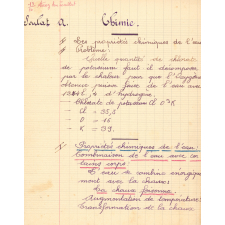 Soulat A. Chimie.
I/ Des propriétés chimiques de l'eau
II/ Problème:
Quelle quantité de chlorate
de potassium faut il décomposer
par la chaleur pour que l'oxygène
obtenu puisse faire de l'eau avec
d'hydrogène
Chlorate de potassium Cl O³K
Cl = 35,5
O = 16
K = 39.
I/- Propriétés chimiques de l'eau:
Combinaison de l'eau avec cer
tains corps:
L'eau se combine énergique
ment avec la chaux:
La chaux foisonne
Augmentation de température
Transformation de la chaux